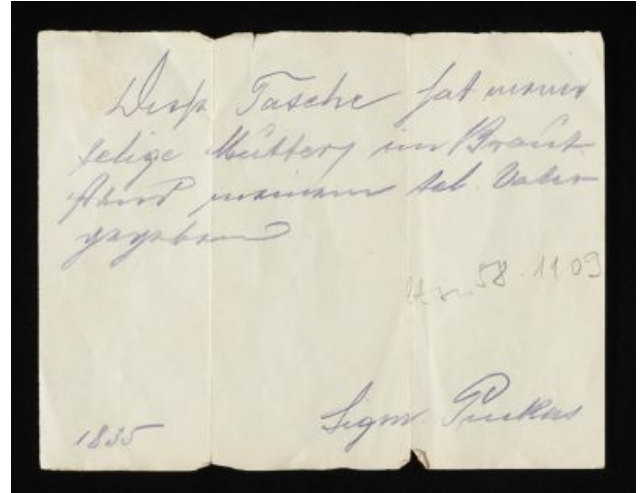 Diese Tasche hat meine
selige Mutter, im Braut-
stand meinem sel. Vater
gegeben
58.1109
Sigm. Pinkus
1835